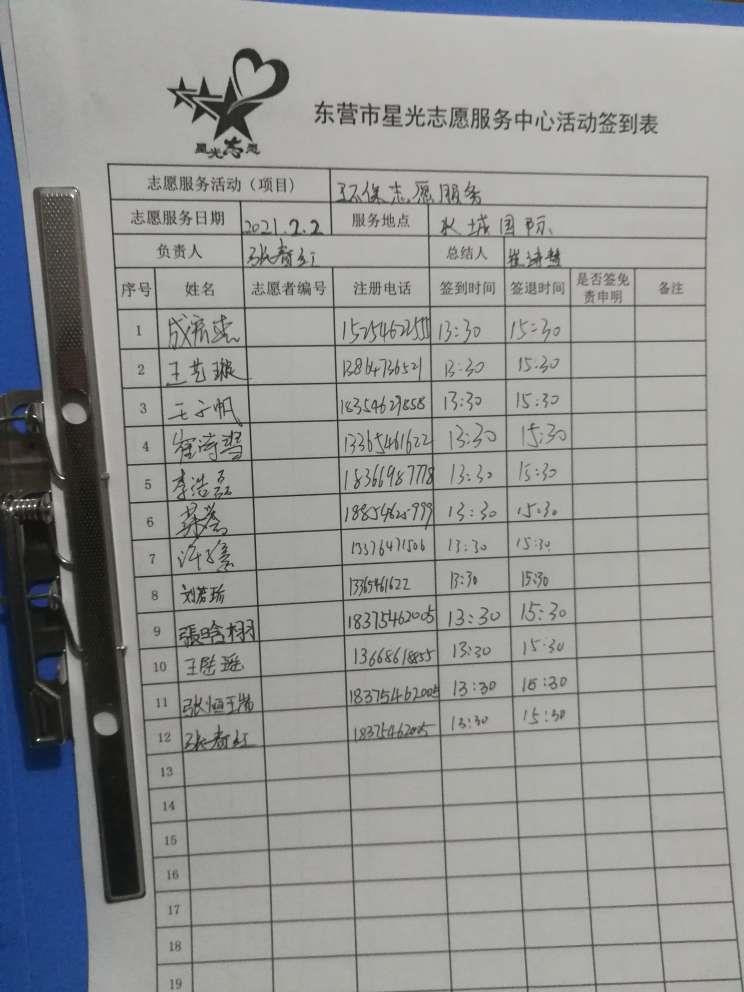 星光志愿
东营市星光志愿服务中心活动签到表
志愿服务活动（项目） 环保志愿服务
志愿服务日期 2021.2.2 服务地点 长城国际
负责人 张春红 总结人
序号 姓名 志愿者编号 注册电话 签到时间 签退时间 是否签免责申明 备注
1 13:30 15:30
2 王艺璇 13864736521 13:30 15:30
3 王子帆 18354629858 13:30 15:30
4 13365461622 13:30 15:30
5 李浩磊 18366987778 13:30 15:30
6 13:30 15:30
7 13376471506 13:30 15:30
8 13365461622 13:30 15:30
9 張晗栩 18375462005 13:30 15:30
10 13668618855 13:30 15:30
11 18375462005 13:30 15:30
12 张春红 18375462005 13:30 15:30
13
14
15
16
17
18
19